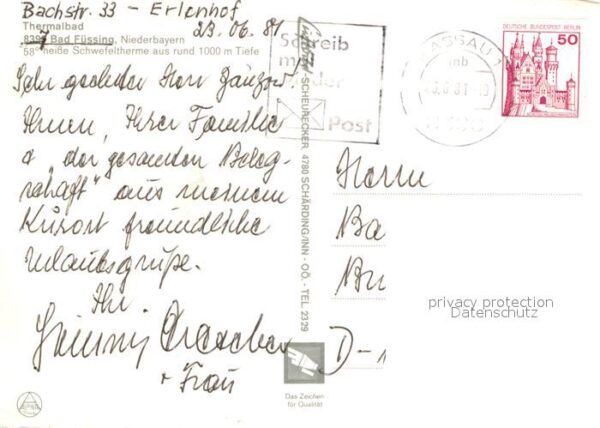 Bachstr. 33 - Erlenhof
Thermalbad 23.06.81
8397 Bad Füssing, Niederbayern
58° heiße Schwefeltherme aus rund 1000 m Tiefe
Sehr geehrter Herr
Ihnen, Ihrer Familie
u. "der gesamten Beleg-
schaft" aus meinem
Kurort freundliche
Urlaubsgrüße.
Ihr
+ Frau
SCHEURECKER 4780 SCHÄRDING/INN - OÖ. - TEL. 2329
Das Zeichen
für Qualität
Schreib
mal
wieder
Post
PASSAU 1
mb
DEUTSCHE BUNDESPOST BERLIN
50
Herrn
Ba
Bu
D-
privacy protection
Datenschutz